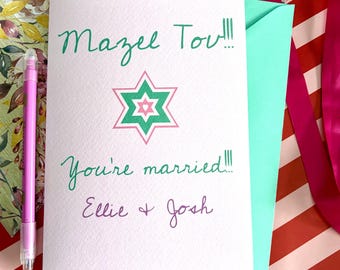 Mazel Tov!!!
You're married!!!
Ellie & Josh